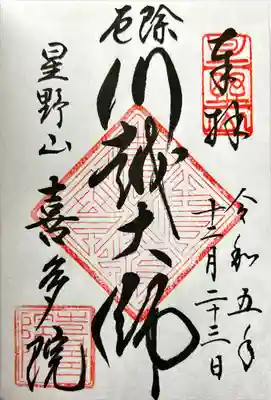 奉拝
令和五年
十二月二十三日
厄除
川越大師
星野山
喜多院